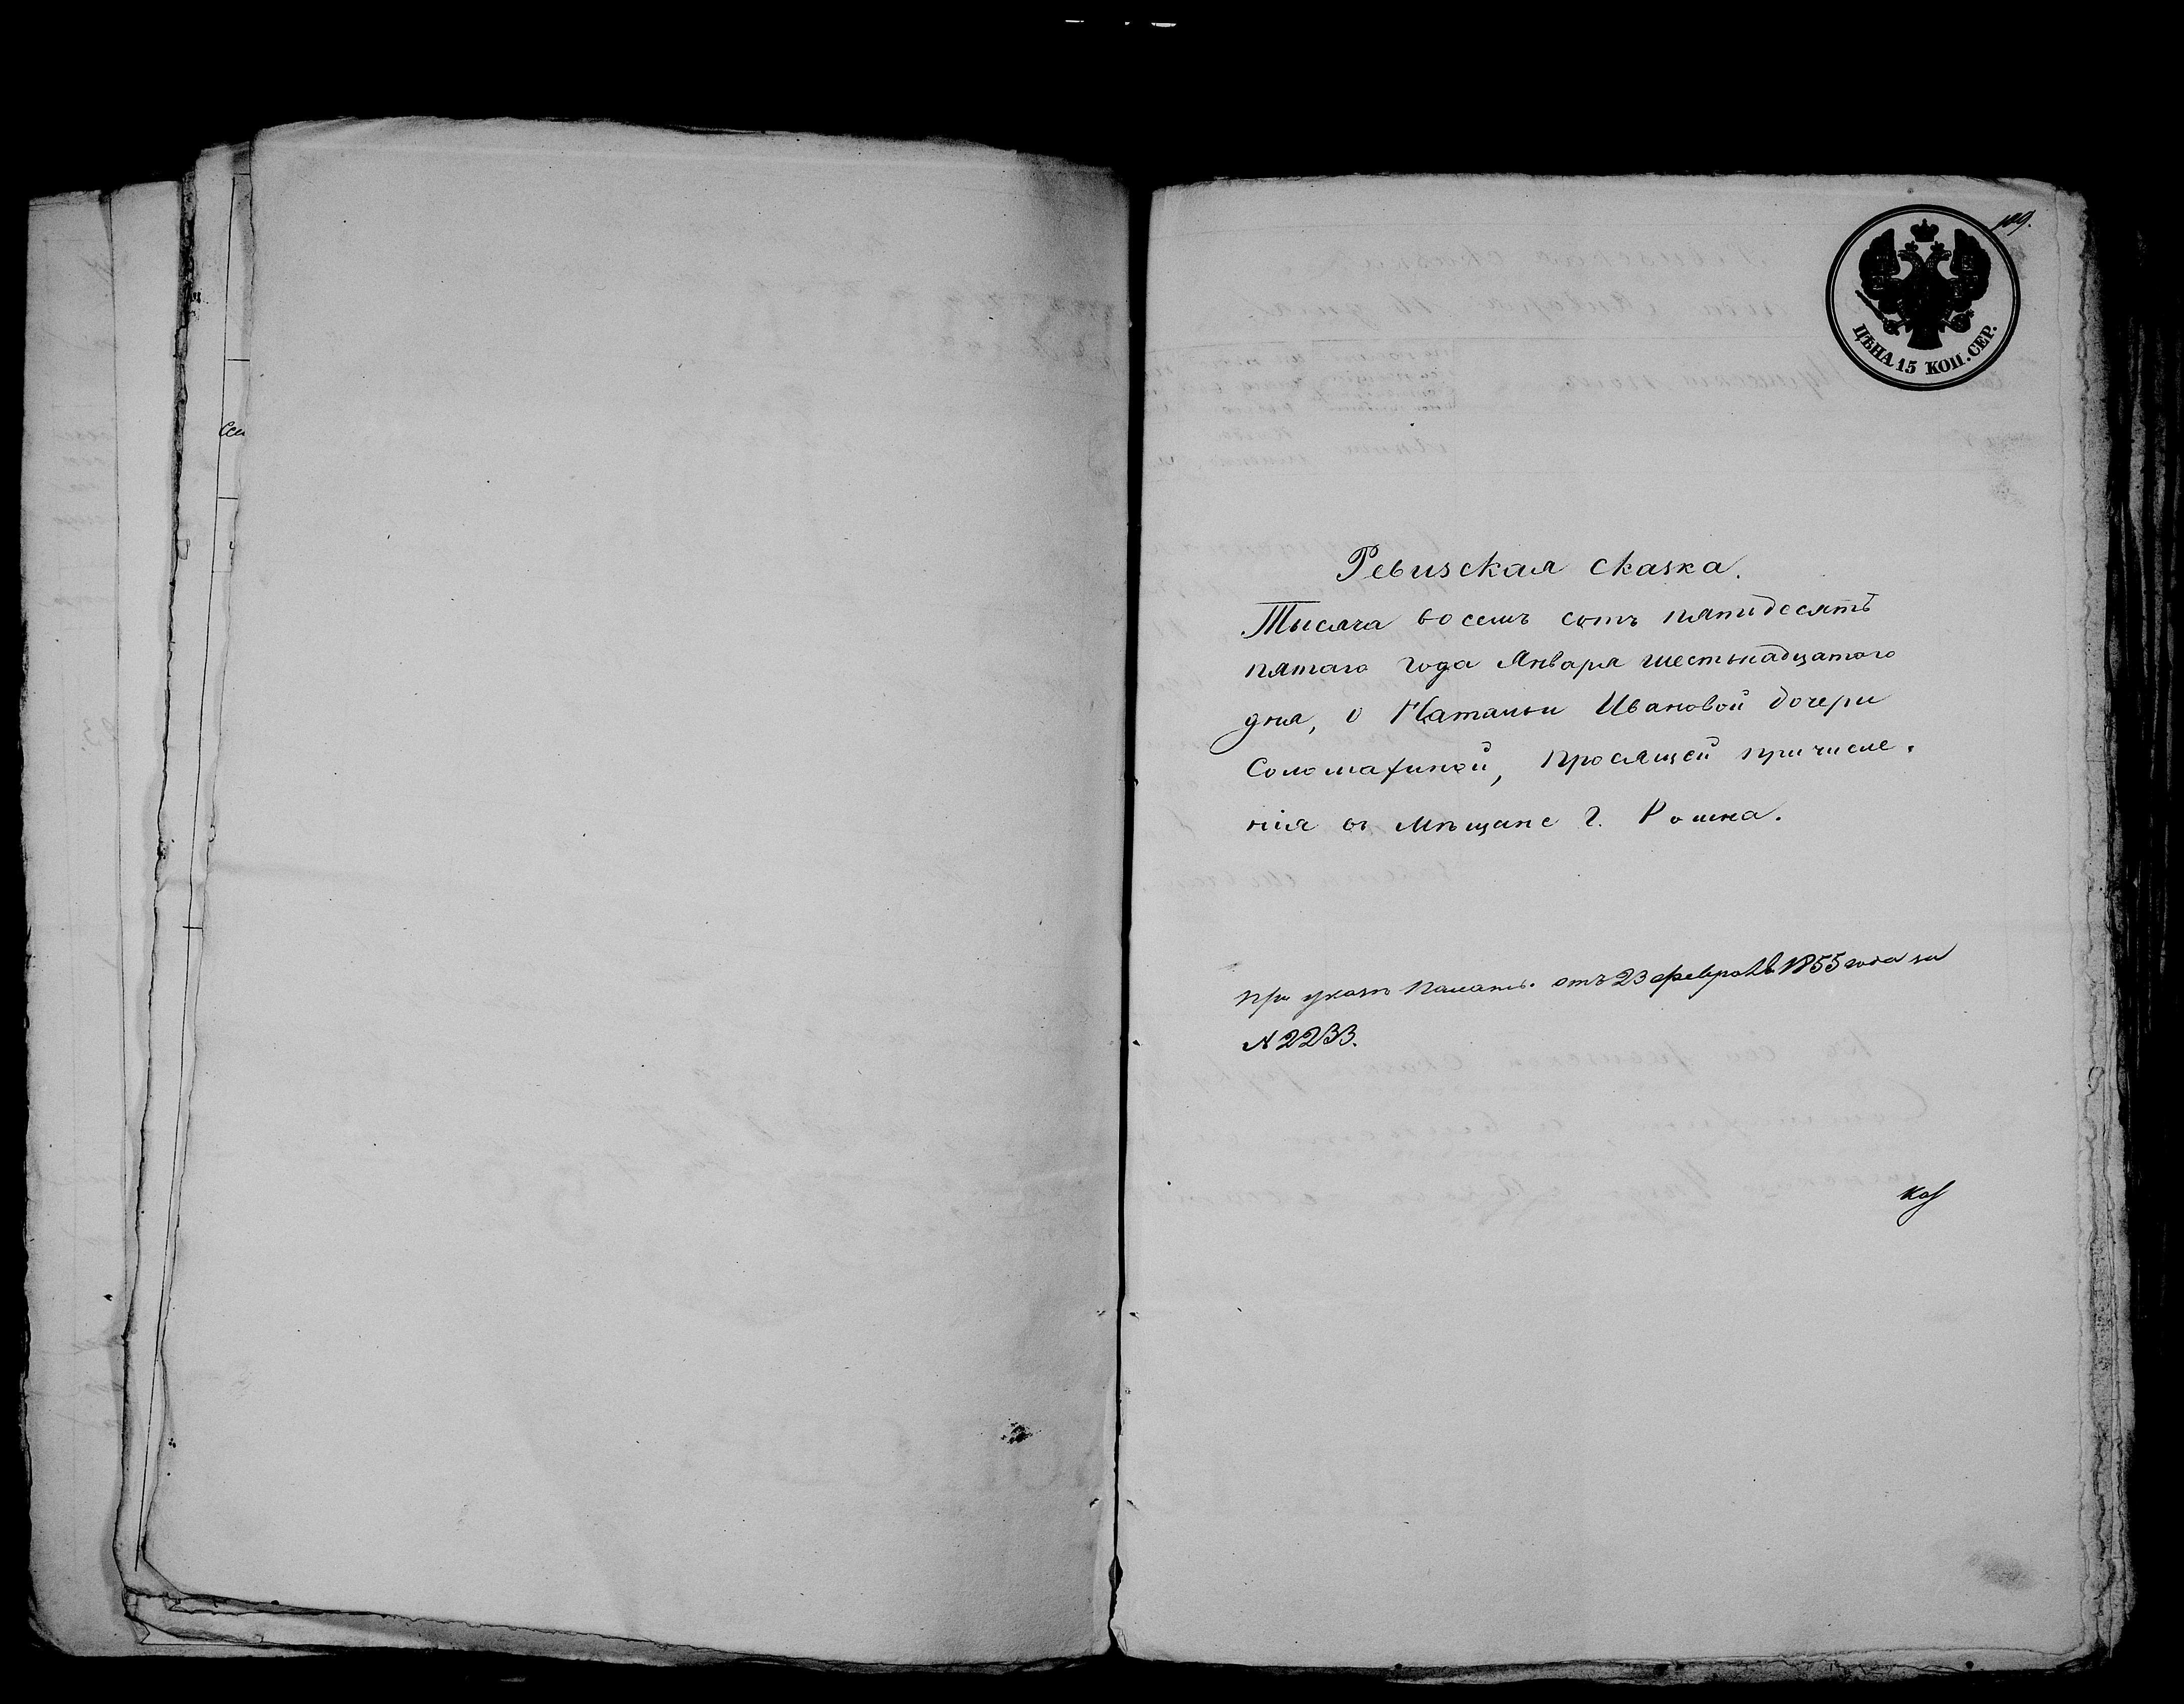 129.
ЦѢНА 15 КОП. СЕР.
Ревизская сказка.
Тысяча восемь сотъ пятидесятъ
пятаго года Января шестьнадцатого
дня, о Натальи Ивановой дочери
Соломахиной, просящей причисле-
нія въ мѣщане г. Ромна.
При указѣ Палаты. отъ 23 февраля 1855 года за
№ 2233.